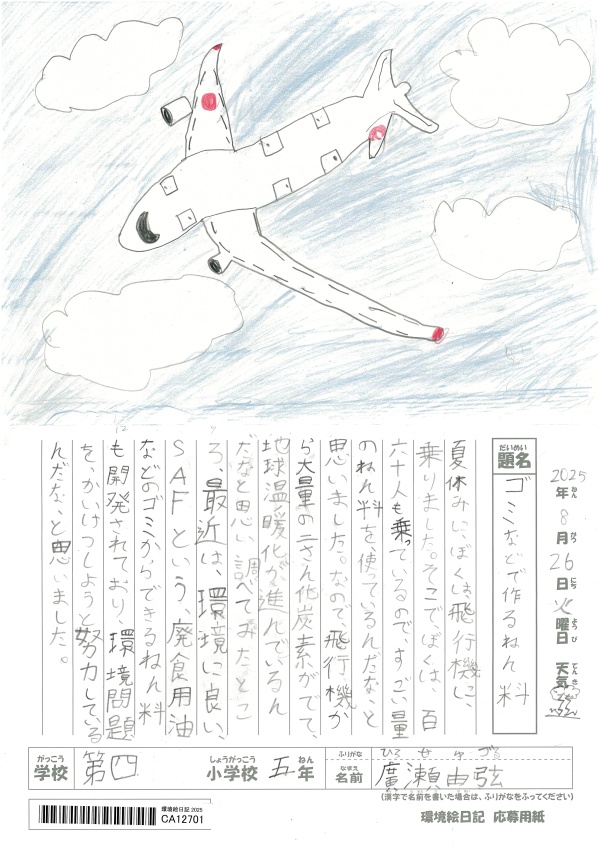 2025年8月26日火曜日 天気
だいめい
題名
ゴミなどで作るねん料
夏休みに、ぼくは、飛行機に、
乗りました。そこで、ぼくは、百
六十人も乗っているので、すごい量
のねん料を、使っているんだな、と
思いました。なので、飛行機か
ら大量の二さん化炭素がでて、
地球温暖化が進んでいるん
だなと思い調べてみたとこ
ろ、最近は、環境に良い、
SAFという、廃食用油
などのゴミからできるねん料
も開発されており、環境問題
を、かいけつしようと努力している
んだな、と思いました。
がっこう しょうがっこう ねん
学校 第四 小学校 五年
ふりがな ひろせゆづる
なまえ
名前 廣瀬由弦
(漢字で名前を書いた場合は、ふりがなをふってください)
環境絵日記 2025
CA12701
環境絵日記 応募用紙